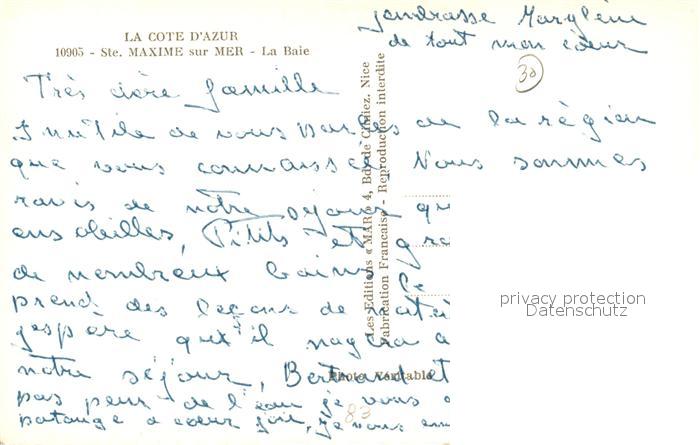 LA COTE D'AZUR
10905 - Ste. MAXIME sur MER - La Baie
Marylène
de tout mon coeur
30
Très chère famille
Inutile de vous parler de la région
que vous connaissez. Nous sommes
ravis de notre séjour qu
ensoleillés, Petits et gra
de nombreux bains. Le
prend des leçons de natati
j'espère qu'il nagera a
notre séjour, Bertrand
pas peur de l'eau je vous
patauge a coeur joie, je vous em
83
Les Editions « MAR » 4, Bd de Cimiez, Nice
Fabrication Française - Reproduction interdite
Photo Véritable
privacy protection
Datenschutz